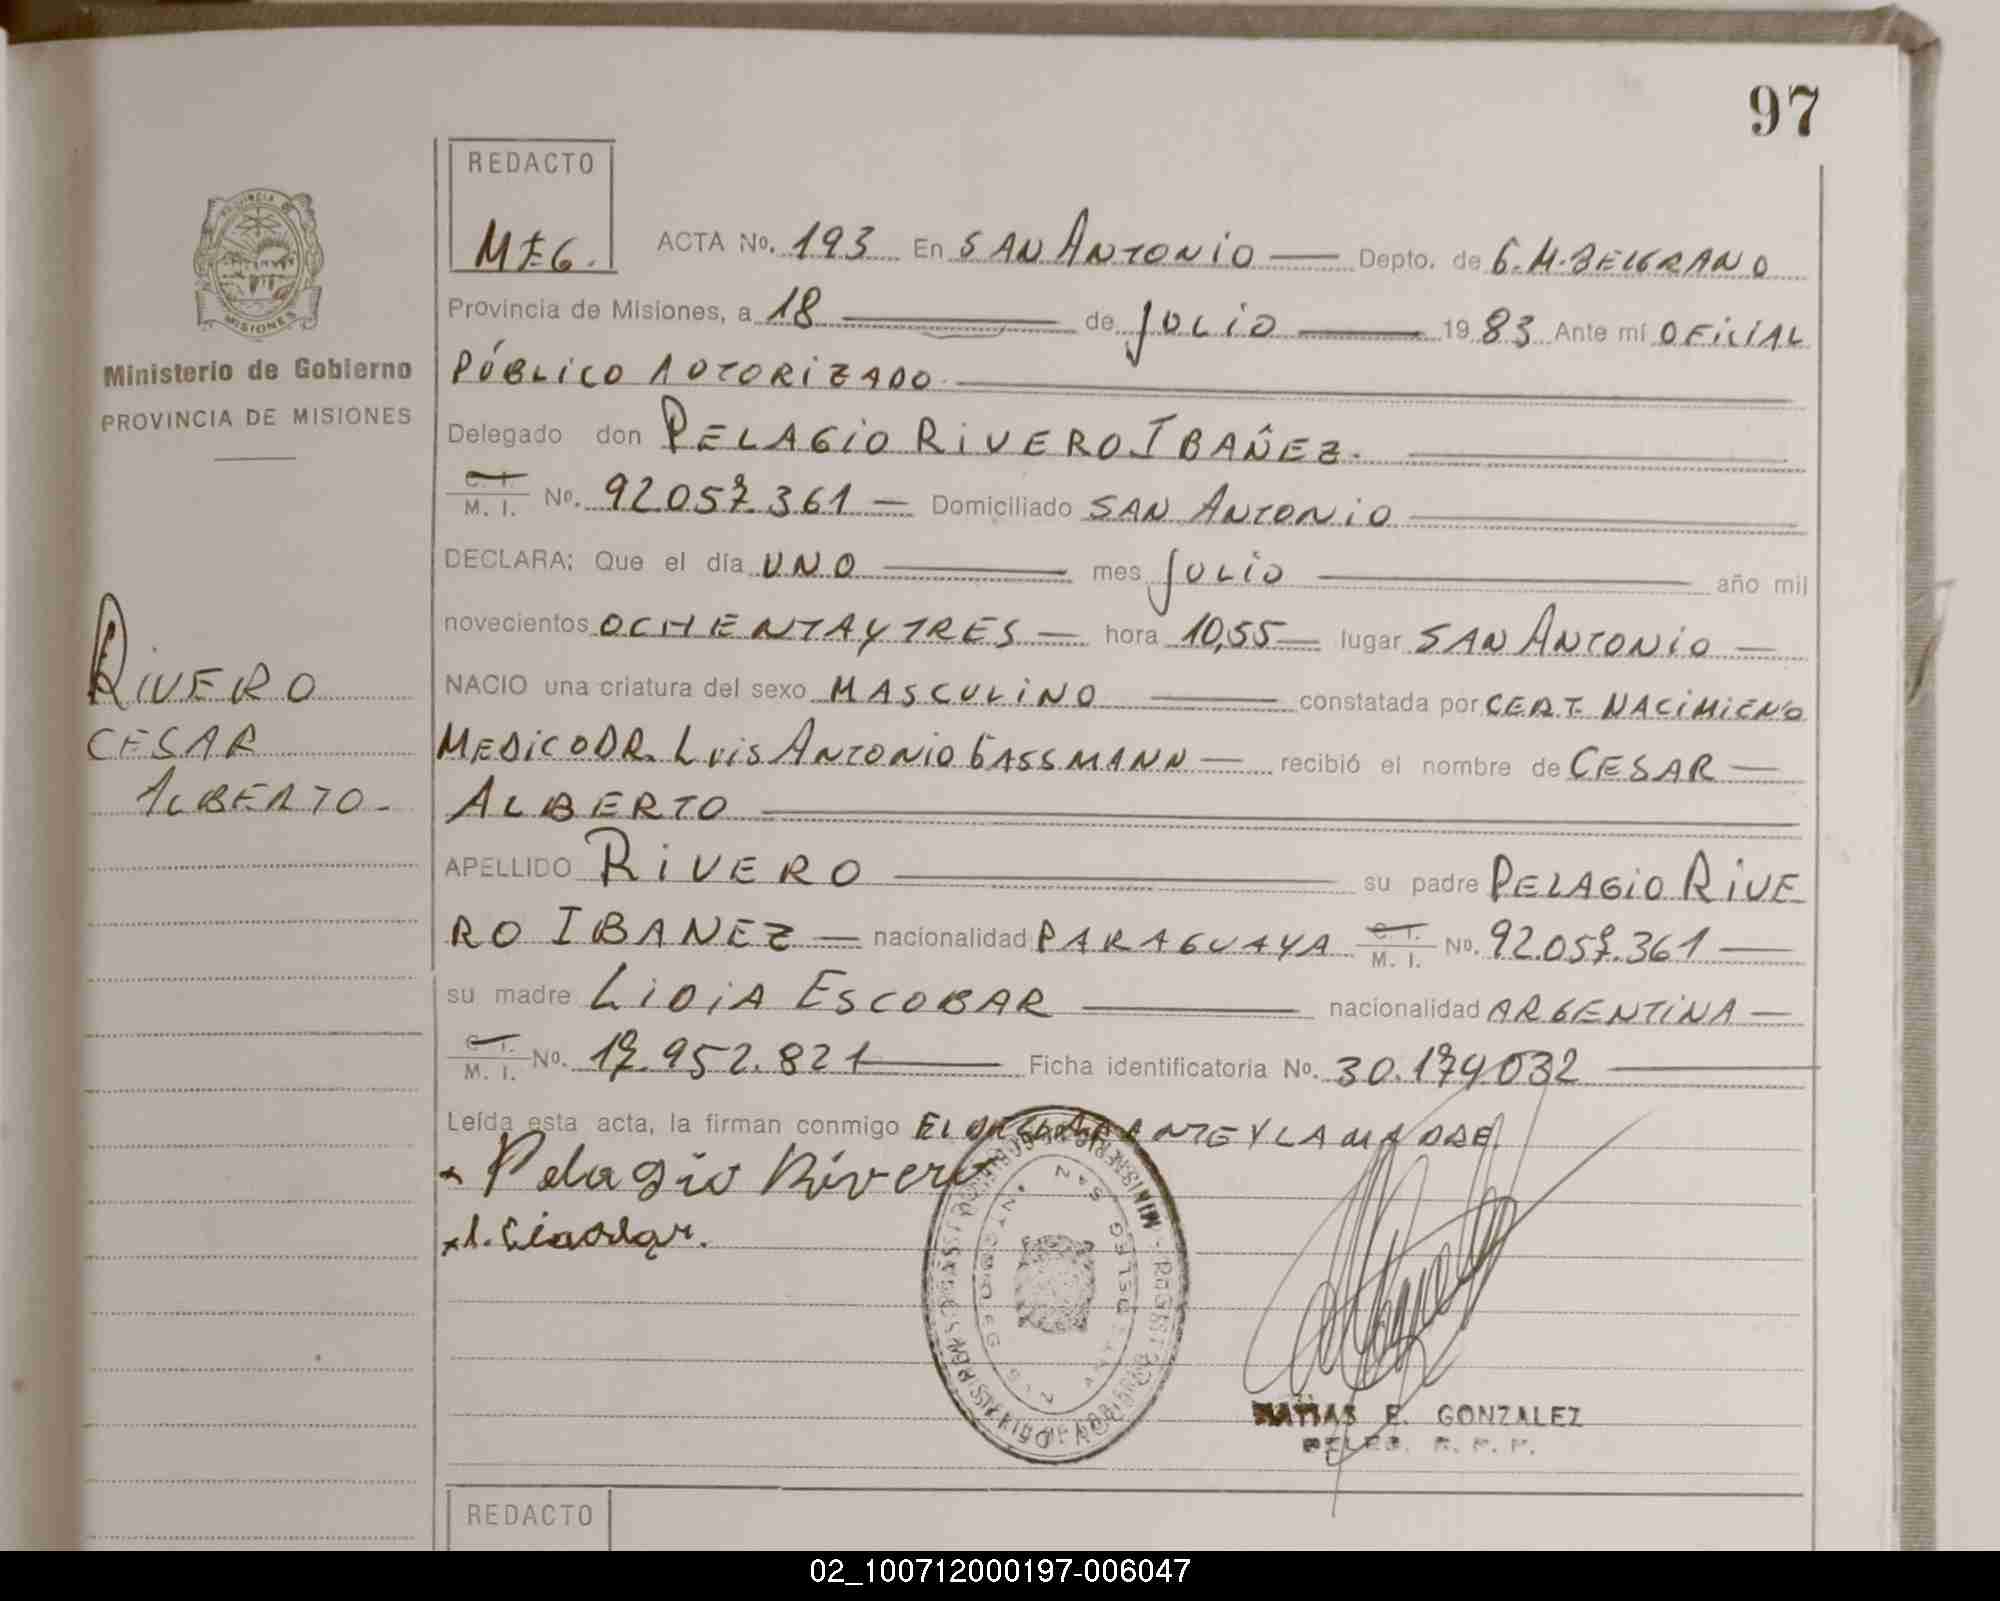 97
REDACTO
M.E.G.
ACTA No. 193 En SAN ANTONIO Depto. de G.M.BELGRANO
Provincia de Misiones, a 18 de JULIO 1983 Ante mí OFICIAL
PÚBLICO AUTORIZADO
Delegado don PELAGIO RIVERO IBAÑEZ.
C. I. M. I. No. 92.057.361 Domiciliado SAN ANTONIO
DECLARA: Que el día UNO mes JULIO año mil
novecientos OCHENTA Y TRES hora 10,55 lugar SAN ANTONIO
NACIO una criatura del sexo MASCULINO constatada por CERT. NACIMIENO
MEDICO DR. LUIS ANTONIO GASSMANN recibió el nombre de CESAR
ALBERTO
APELLIDO RIVERO su padre PELAGIO RIVE
RO IBANEZ nacionalidad PARAGUAYA C. I. M. I. No. 92.057.361
su madre LIDIA ESCOBAR nacionalidad ARGENTINA
C. I. M. I. No. 17.952.821 Ficha identificatoria No. 30.179032
Leída esta acta, la firman conmigo EL DECLARANTE Y LA MADRE
x Pelagio Rivero
MATIAS E. GONZALEZ
DELEG. R. P. P.
REDACTO
PROVINCIA DE
MISIONES
Ministerio de Gobierno
PROVINCIA DE MISIONES
RIVERO
CESAR
ALBERTO-
02_100712000197-006047